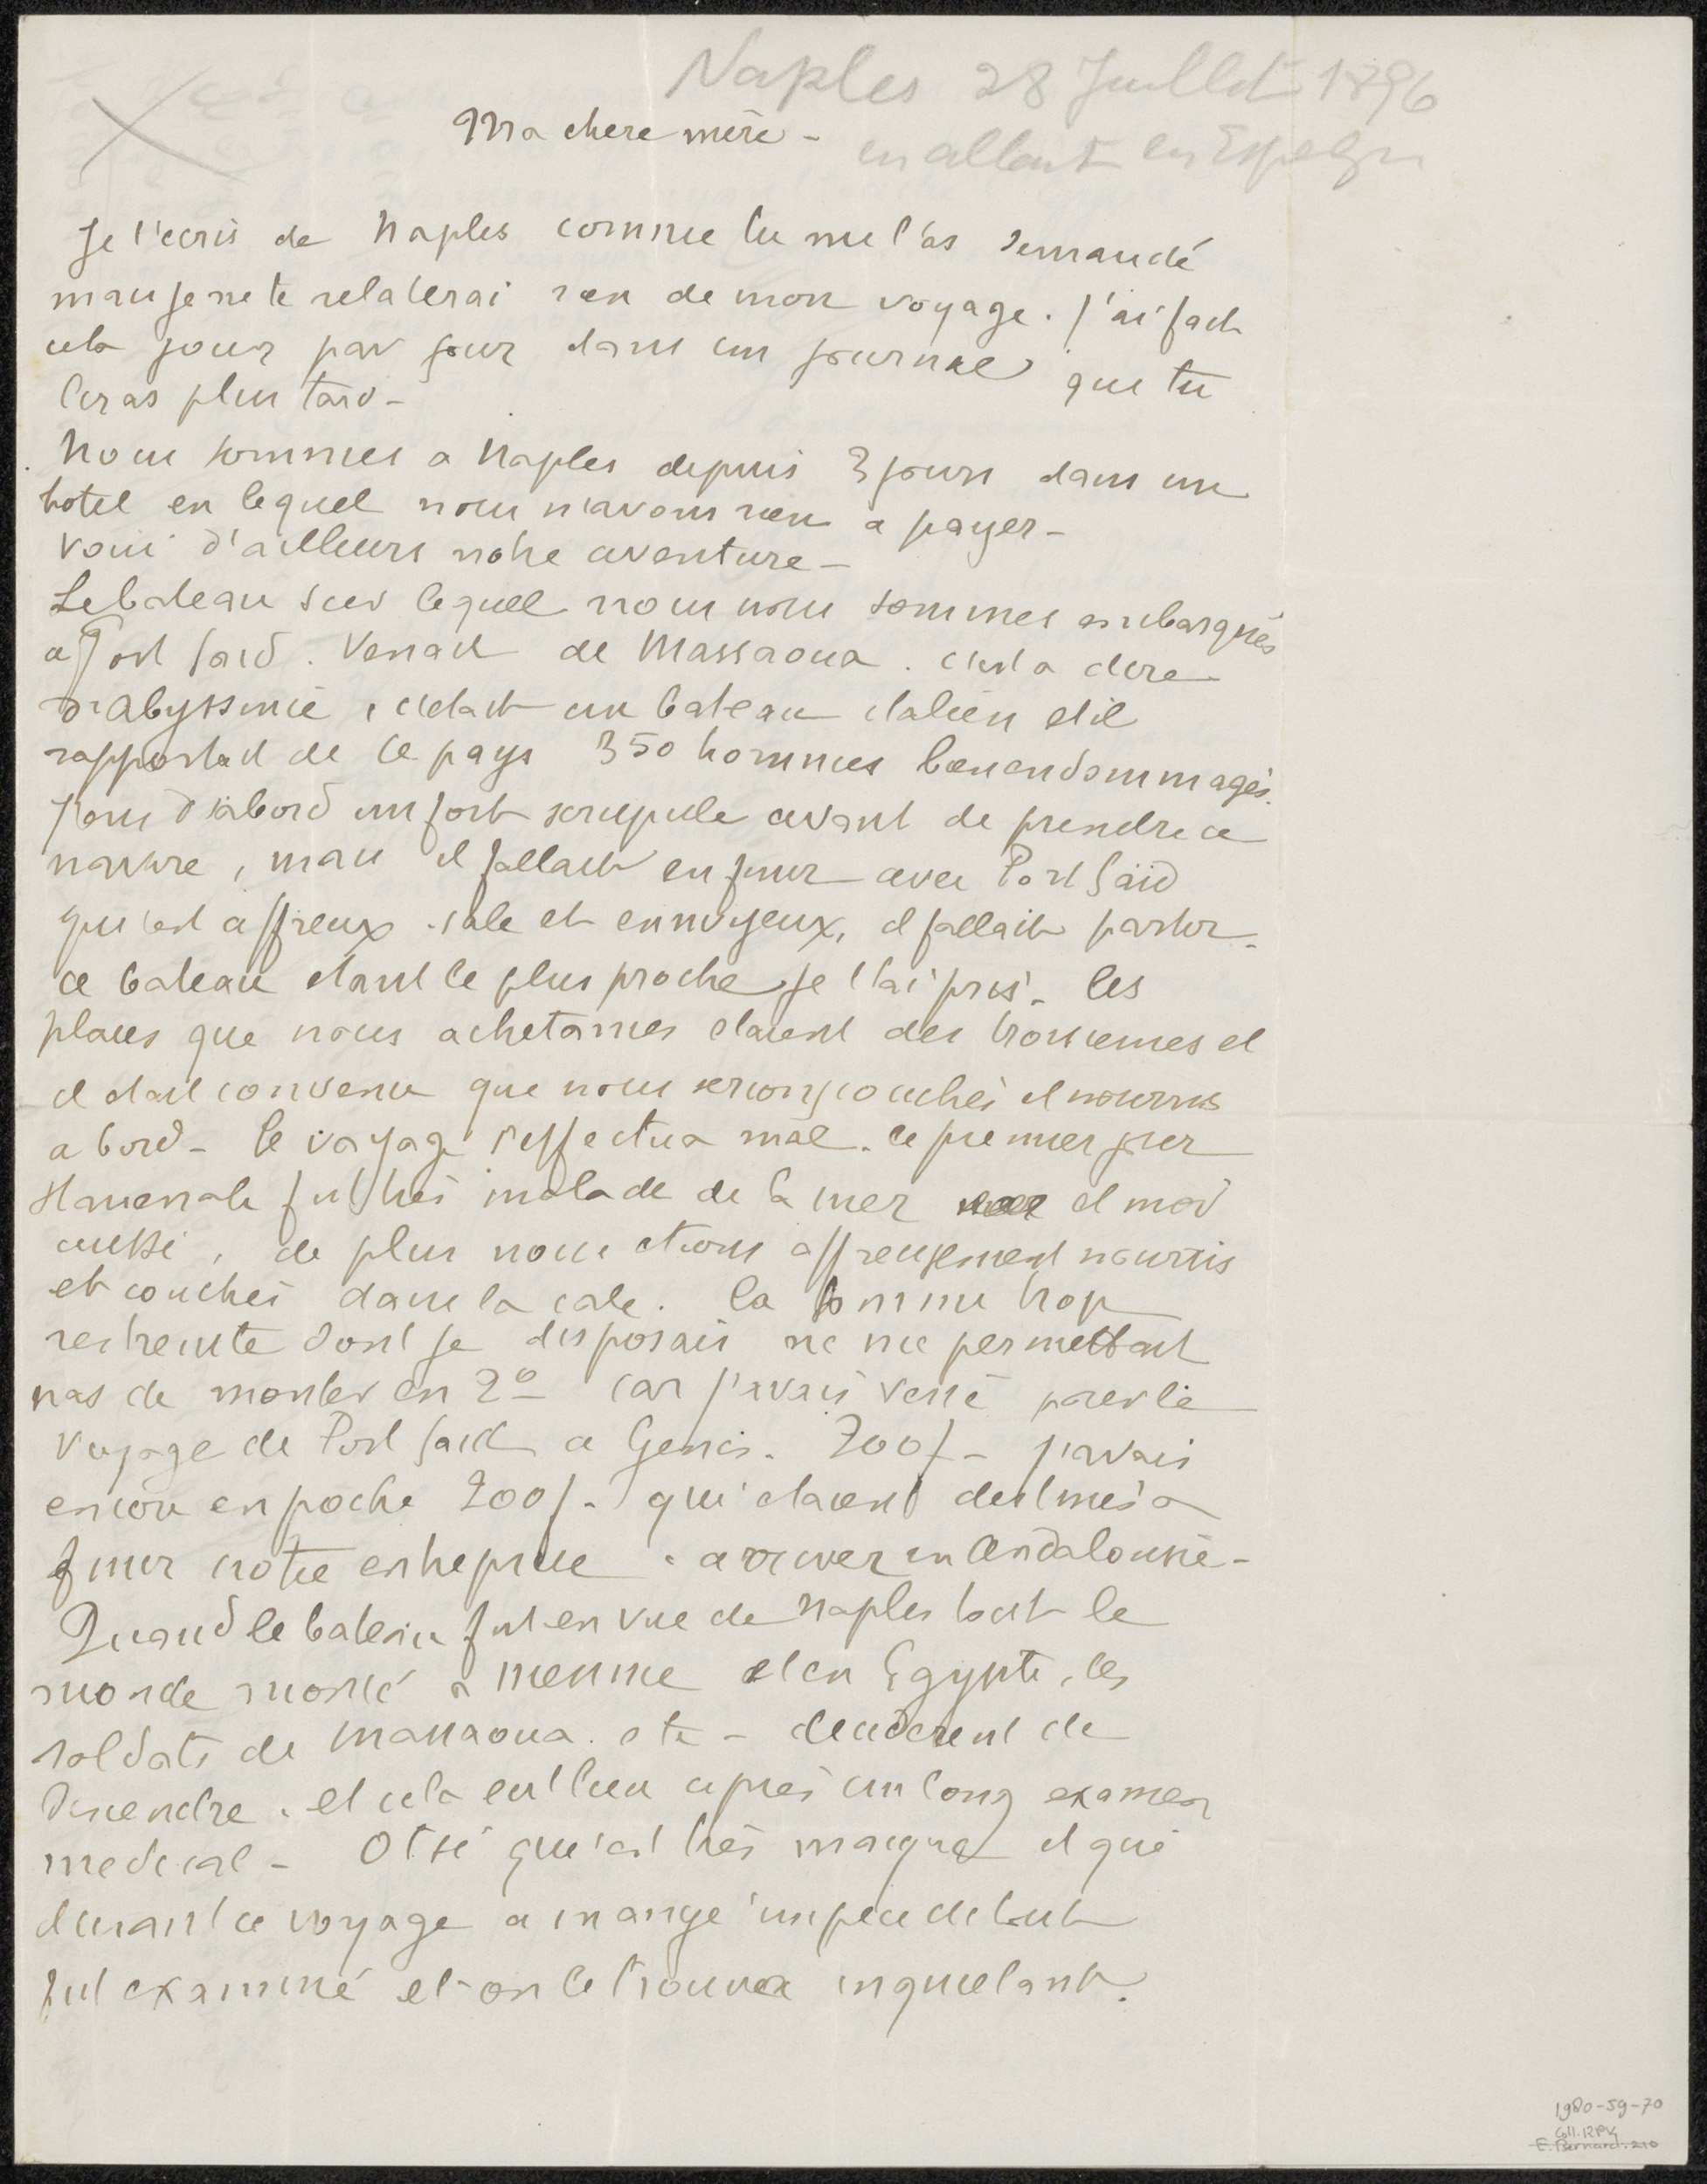 Naples 28 Juillet 1896
Ma chere mère -
en allant en Espagne
Je t'ecris de Naples comme tu me l'as demandé
mais je ne te relaterai rien de mon voyage. J'ai fait
cela jour par jour dans un journal que tu
liras plus tard -
Nous sommes a Naples depuis 3 jours dans un
hotel en lequel nous n'avons rien a payer -
Voici d'ailleurs notre aventure -
Le bateau sur lequel nous nous sommes embarqués
a Port Said. Venait de Massaoua. c'est a dire
d'Abyssinie, c'etait un bateau italien et il
rapportait de ce pays 350 hommes bien endommagés.
J'eus d'abord un fort scrupule avant de prendre ce
navire, mais il fallait en finir avec Port Saïd
qui est affreux. sale et ennuyeux, il fallait partir -
ce bateau etant le plus proche je l'ai pris - les
places que nous achetames etaient des troisiemes et
il etait convenu que nous serions couchés et nourris
a bord - le voyage s'effectua mal. le premier jour
Hanenah fut très malade de la mer et moi
aussi, de plus nous etions affreusement nourris
et couchés dans la cale. la somme trop
restreinte dont je disposais ne me permettait
pas de monter en 2e car j'avais versé pour le
voyage de Port Said a Genes. 700f - j'avais
encore en poche 200f - qui etaient destinés a
finir notre entreprise. arriver en Andalousie -
Quand le bateau fut en vue de Naples tout le
monde monté a Messine et en Egypte, les
soldats de Massaoua. etc - deciderent de
descendre. et cela eut lieu après un long examen
medical - Otsé qui est très maigre et qui
durant ce voyage a mangé un peu de tout
fut examiné et on le trouva inquietant.
1980-59-70
Coll. RPV
E. Bernard. 210